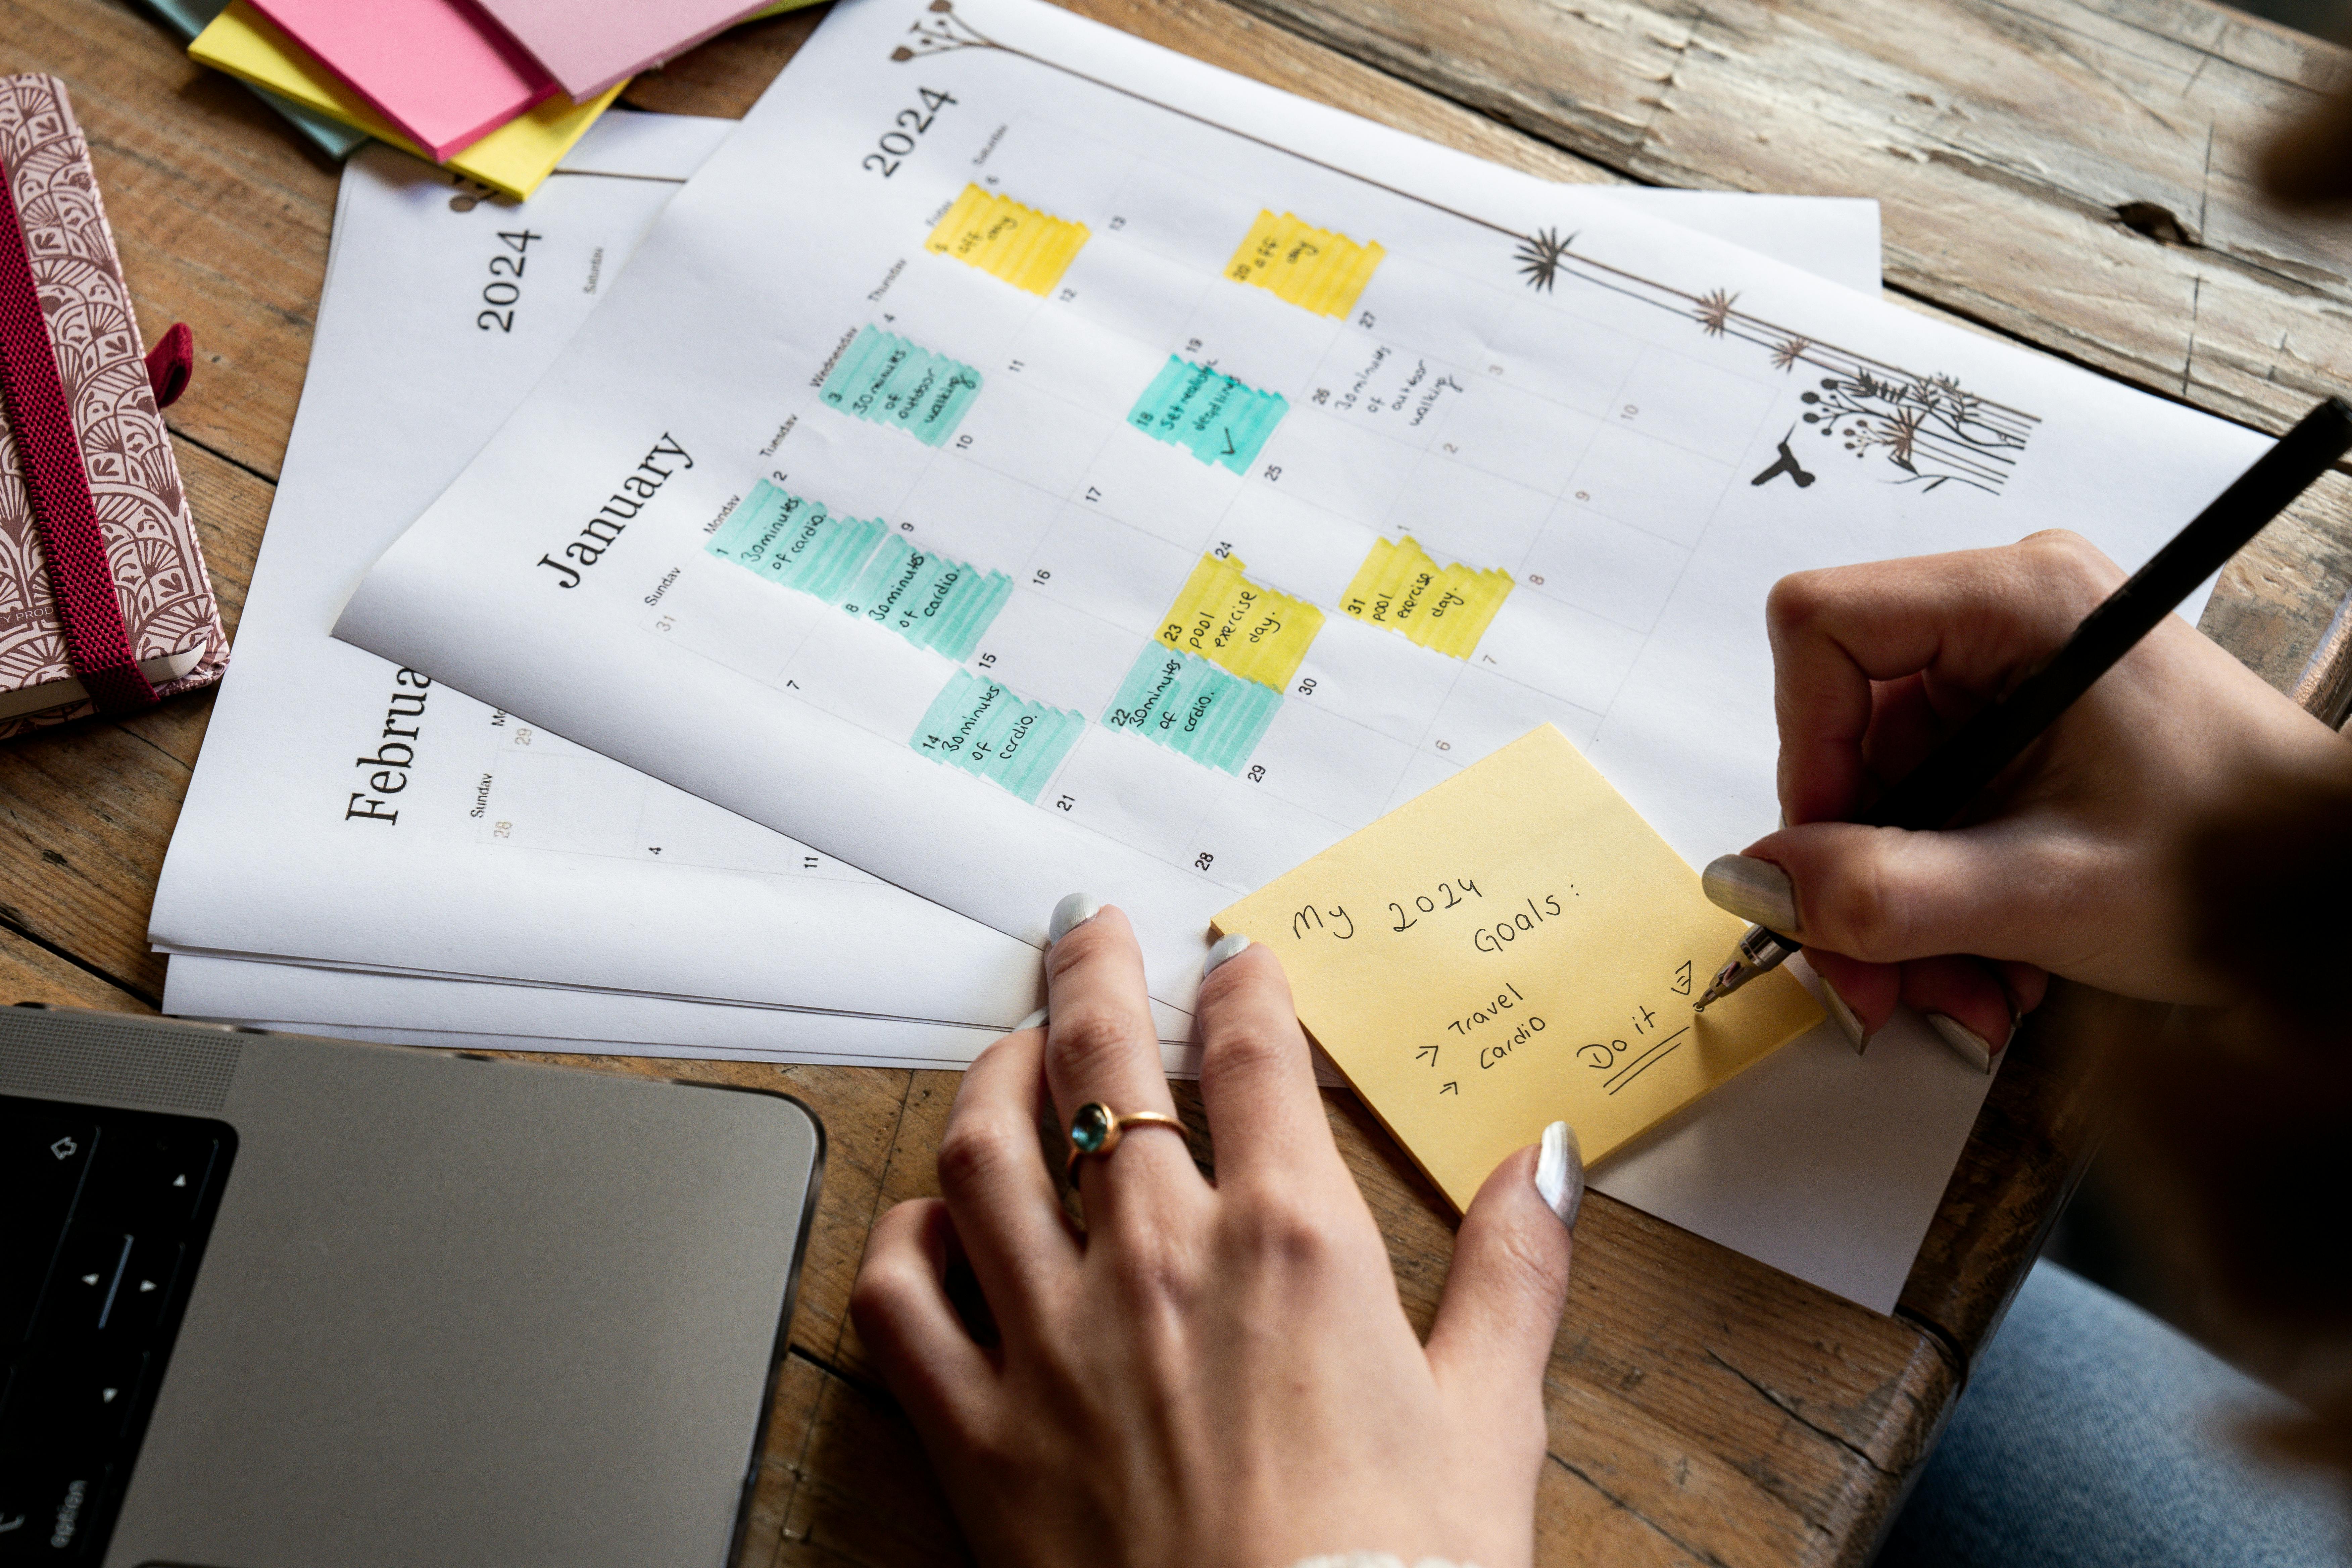 2024
January
Sunday
Monday
Tuesday
Wednesday
Thursday
Friday
Saturday
31
1
30 minutes
of cardio.
2
3
30 minutes
of outdoor
walking
4
5
off day
6
7
8
30 minutes
of cardio.
9
10
11
12
13
14
30 minutes
of
cardio.
15
16
17
18
Set
19
20
off
day
21
22
30 minutes
of
cardio.
23
pool
exercise
day.
24
25
26
30 minutes
of outdoor
walking
27
28
29
30
31
pool
exercise
day.
1
2
3
6
7
8
9
10
2024
Saturday
Februa
Sunday
Mo
28
29
4
11
My 2024
Goals:
→ Travel
→ Cardio
Do it
Y PROD
option